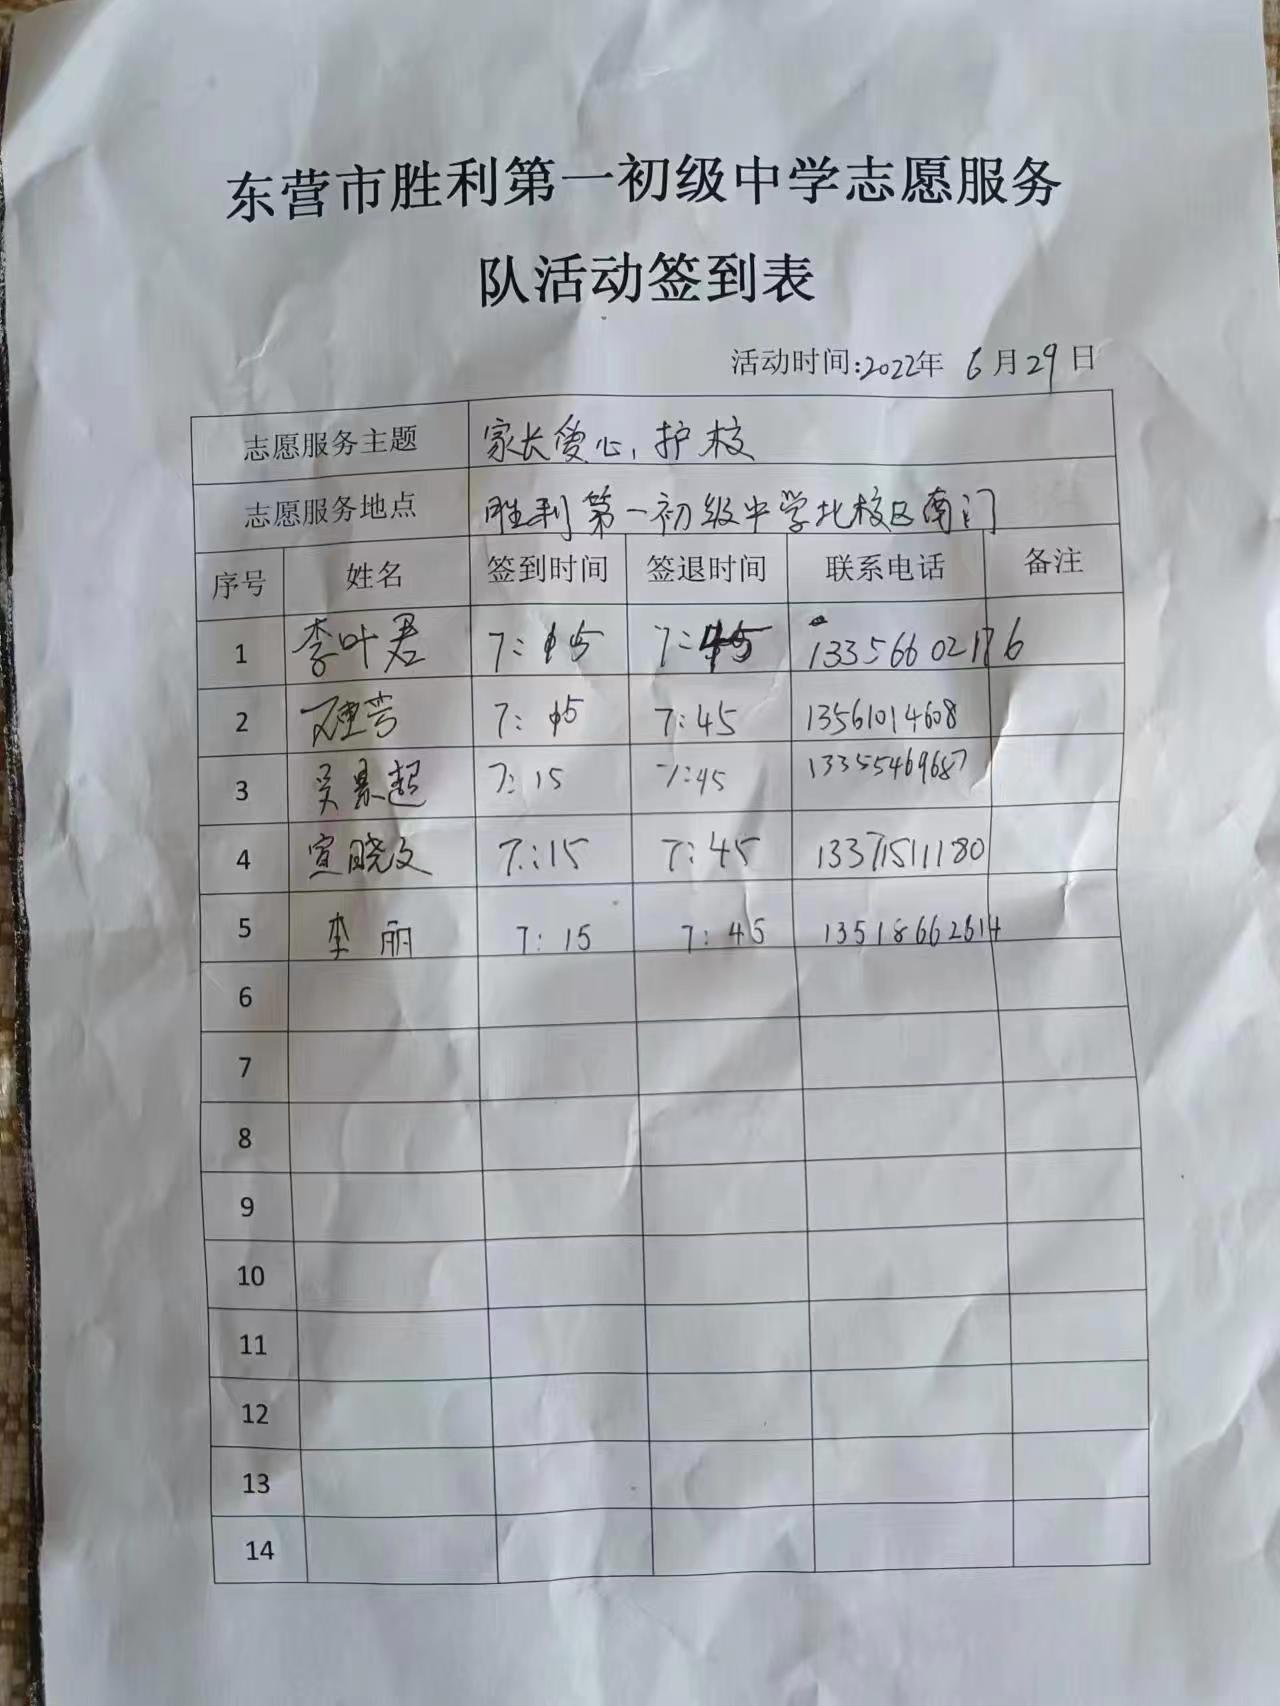 东营市胜利第一初级中学志愿服务
队活动签到表
活动时间:2022年 6月29日
志愿服务主题 家长爱心,护校
志愿服务地点 胜利第一初级中学北校区南门
序号 姓名 签到时间 签退时间 联系电话 备注
1 李叶君 7:15 7:45 13356602176
2 7:15 7:45 13561014608
3 吴景超 7:15 7:45 13355469687
4 宣晓文 7:15 7:45 13371511180
5 李丽 7:15 7:45 13518662614
6
7
8
9
10
11
12
13
14